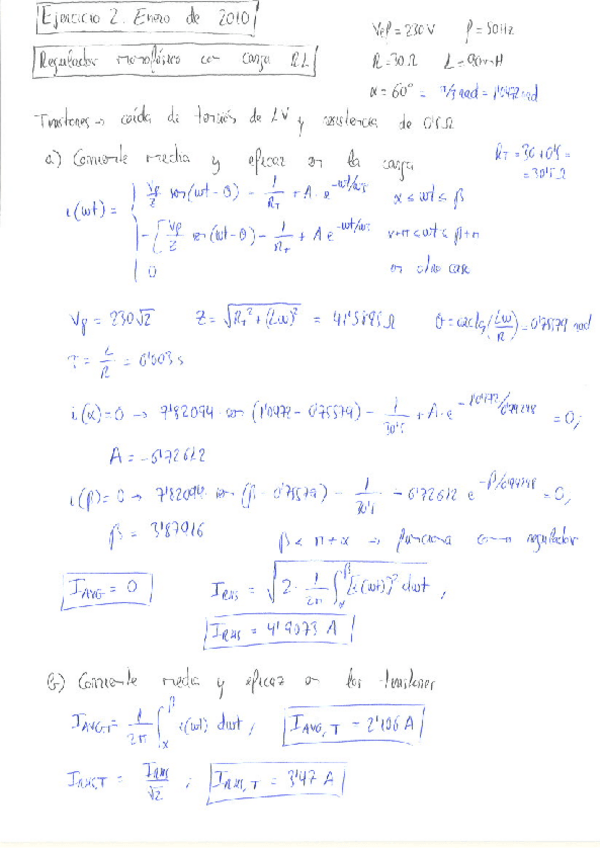 Ejercicio 2. Enero de 2010
Vef = 230 V f = 50Hz
Regulador monofásico con carga RL
R = 30 Ω L = 90 mH
α = 60° = π/3 rad = 1'0472 rad
Tiristores → caída de tensión de 1V y resistencia de 0'5 Ω
a) Corriente media y eficaz en la carga
RT = 30 + 0'5 =
= 30'5 Ω
i(wt) = { Vp/Z sen(wt - θ) - 1/RT + A · e^(-wt/wτ) α ≤ wt ≤ β
-[Vp/Z sen(wt-θ) - 1/RT + A e^(-wt/wτ) α+π ≤ wt ≤ β+π
0 en otro caso
Vp = 230√2 Z = √(RT² + (Lw)²) = 41'5895 Ω θ = arctg(Lw/R) = 0'7479 rad
τ = L/R = 0'003 s
i(α) = 0 → 7'82094 · sen (1'0472 - 0'75579) - 1/30'5 + A · e^(-1'0472/0'94248) = 0;
A = -6'72612
i(β) = 0 → 7'82094 · sen (β - 0'75579) - 1/30'5 - 6'72612 e^(-β/0'94248) = 0,
β = 3'87016 β < π + α → funciona como regulador
IAVG = 0 IRMS = √(2 · 1/2π ∫αβ [i(wt)]² dwt ,
IRMS = 4'9073 A
b) Corriente media y eficaz en los tiristores
IAVG,T = 1/2π ∫αβ i(wt) dwt, IAVG,T = 2'106 A
IRMS,T = IRMS/√2 ; IRMS,T = 3'47 A